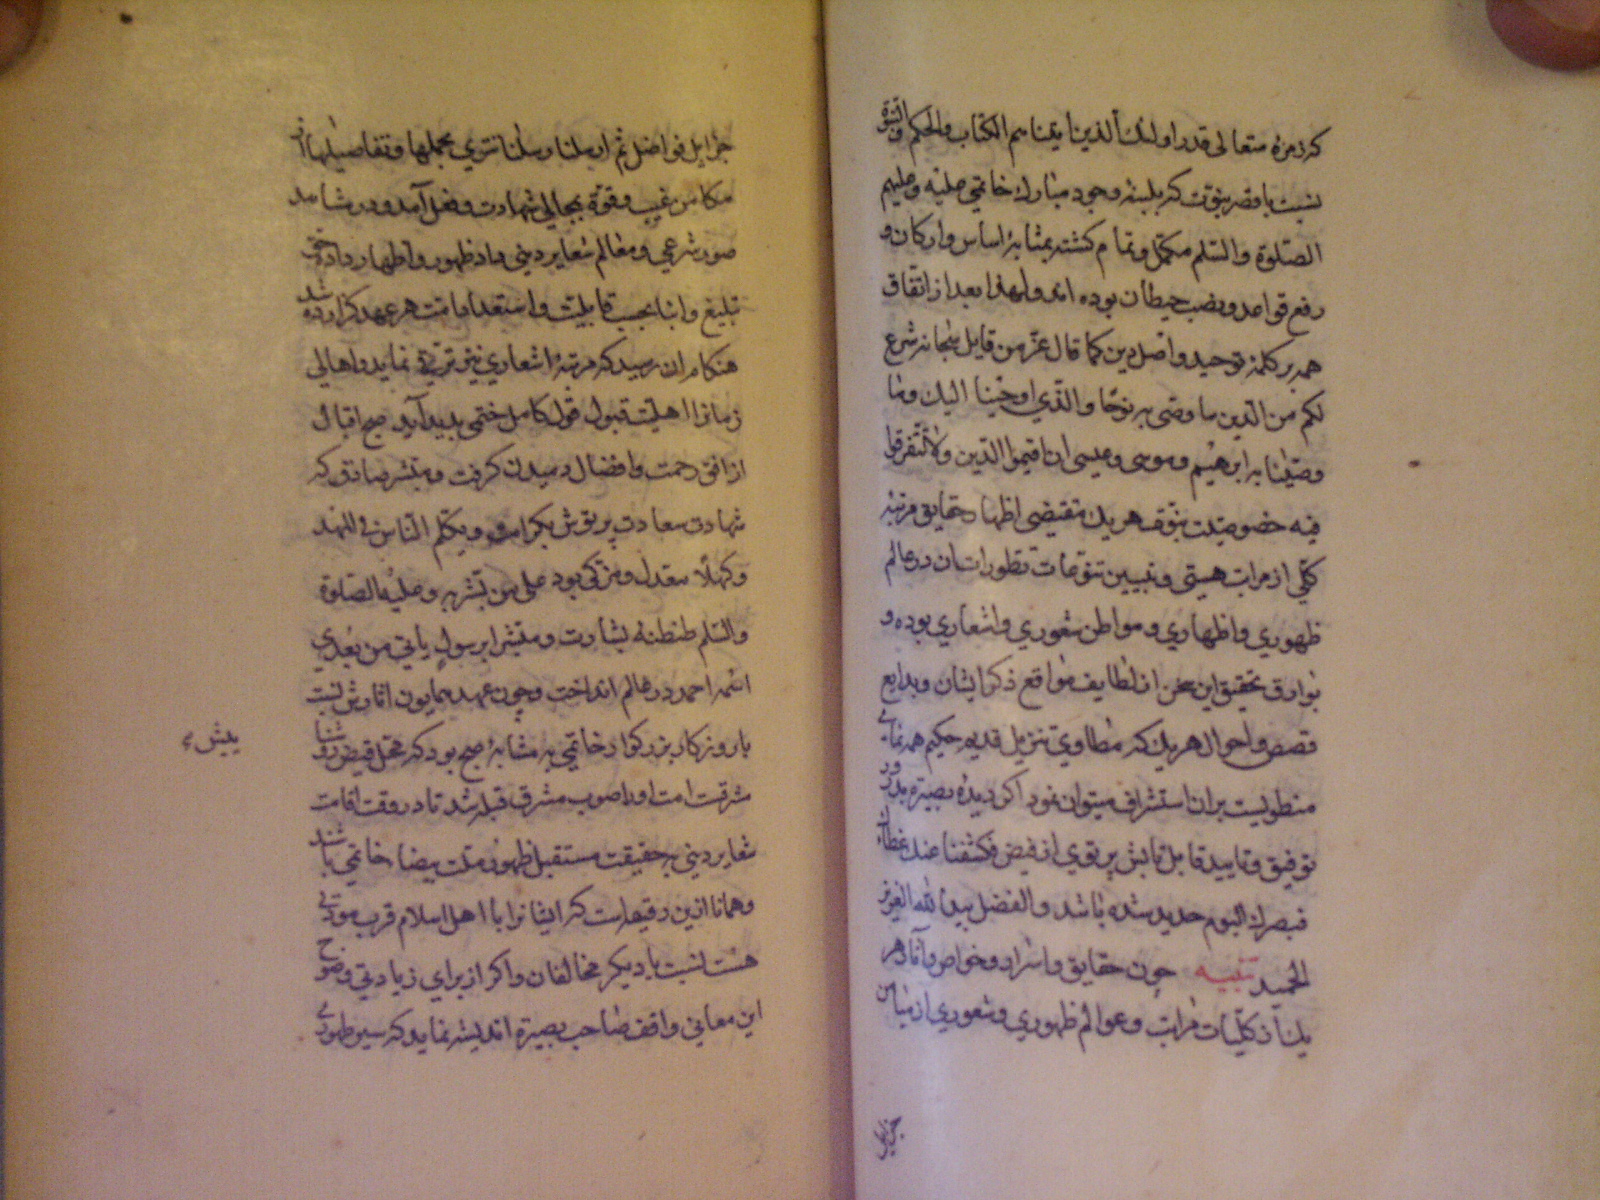 که زمرهٔ متعالی قدر اولئك الذین آتیناهم الکتاب والحکم والنبوة
نسبت با قصر نبوت که بلبنهٔ وجود مبارك خاتمی علیه وعلیهم
الصلوة والسلم مکمل وتمام کشته بمثابهٔ اساس وارکان و
رفع قواعد ونصب حیطان بوده اند ولهذا بعد از اتفاق
همه بر کلمهٔ توحید واصل دین کما قال عز من قایل سبحانه شرع
لکم من الدین ما وصی به نوحا والذی اوحینا الیك وما
وصینا به ابرهیم وموسی وعیسی ان اقیموا الدین ولا تتفرقوا
فیه خصوصیت نبوت هر یك مقتضی اظهار حقایق مرتبهٔ
کلی از مراتب هستی وتبیین تنوعات تطورات آن در عالم
ظهوری واظهاری ومواطن شعوری واشعاری بوده و
بوارق تحقیق این سخن از لطایف مواقع ذکر ایشان وبدایع
قصص واحوال هر یك که مطاوی تنزیل قدیم حکیم همه
منطویست بران استشراف میتوان نمود اکر دیدهٔ بصیرة
توفیق وتایید قابل تابش پرتوی از فیض فکشفنا عنك غطاءك
فبصرك الیوم حدید شده باشد والفضل بید الله العزیز
الحمید تنبیه چون حقایق واسرار وخواص وآثار هر
یك از کلیات مراتب وعوالم ظهوری وشعوری از میامن
جزایل
جزایل فواضل ثم ارسلنا رسلنا تتری بمجملها وتفاصیلها از
مکامن غیب وقوة بمجالی شهادت وفعل آمد ودر مشاهد
صور شرعی ومعالم شعایر دینی داد ظهور واظهار داده
تبلیغ وانبا بحسب قابلیت واستعداد امت هر عهد کزارده شد
هنکام ان رسید که مرتبهٔ اشعاری نیز ترقی نماید واهالی
زمانرا اهلیت قبول قول کامل ختمی پدید آید صبح اقبال
از افق رحمت وافضال دمیدن کرفت ومبشر صادق که
شهادت سعادت پرتوش بکرامت ویکلم الناس فی المهد
وکهلا معدل ومزکی بود علی من تبشر به وعلیه الصلوة
والسلم طنطنهٔ بشارت ومبشرا برسول یاتی من بعدی
اسمه احمد در عالم انداخت وچون عهد همایون آثارش نسبت
با روزکار بزرکوار خاتمی به مثابهٔ صبح بود که محل فیض
مشرقست امت او را صوب مشرق قبله شد تا در وقت اقامت
شعایر دینی بحقیقت مستقبل ظهور ملت بیضاء خاتمی باشند
وهمانا ازین دقیقه است که ایشانرا با اهل اسلام قرب مودتی
هست نسبت با دیکر مخالفان واکر از برای زیادتی وضوح
این معانی واقف صاحب بصیرة اندیشه نماید که سیر ظهوری